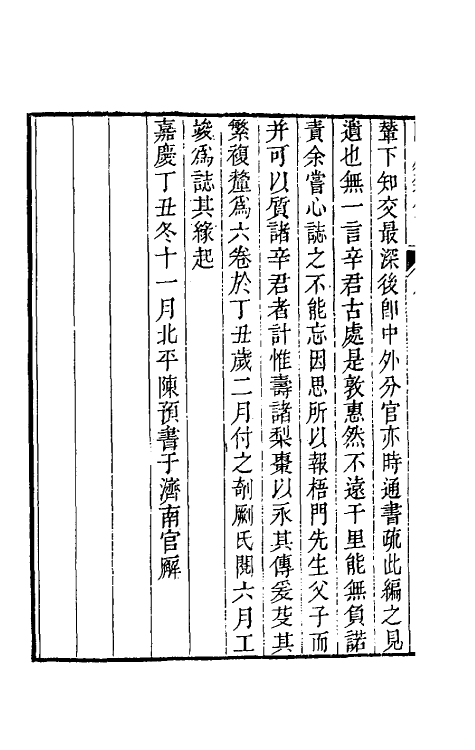 輦下知交最深後卽中外分官亦時通書疏此編之見
遺也無一言辛君古處是敦惠然不遠千里能無負諾
責余嘗心誌之不能忘因思所以報梧門先生父子而
并可以質諸辛君者計惟壽諸梨棗以永其傳爰芟其
繁複釐爲六卷於丁丑歲二月付之剞劂氏閱六月工
竣爲誌其緣起
嘉慶丁丑冬十一月北平陳預書于濟南官廨